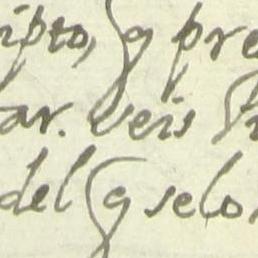 ipto, q pre
ar. veis
del q selo